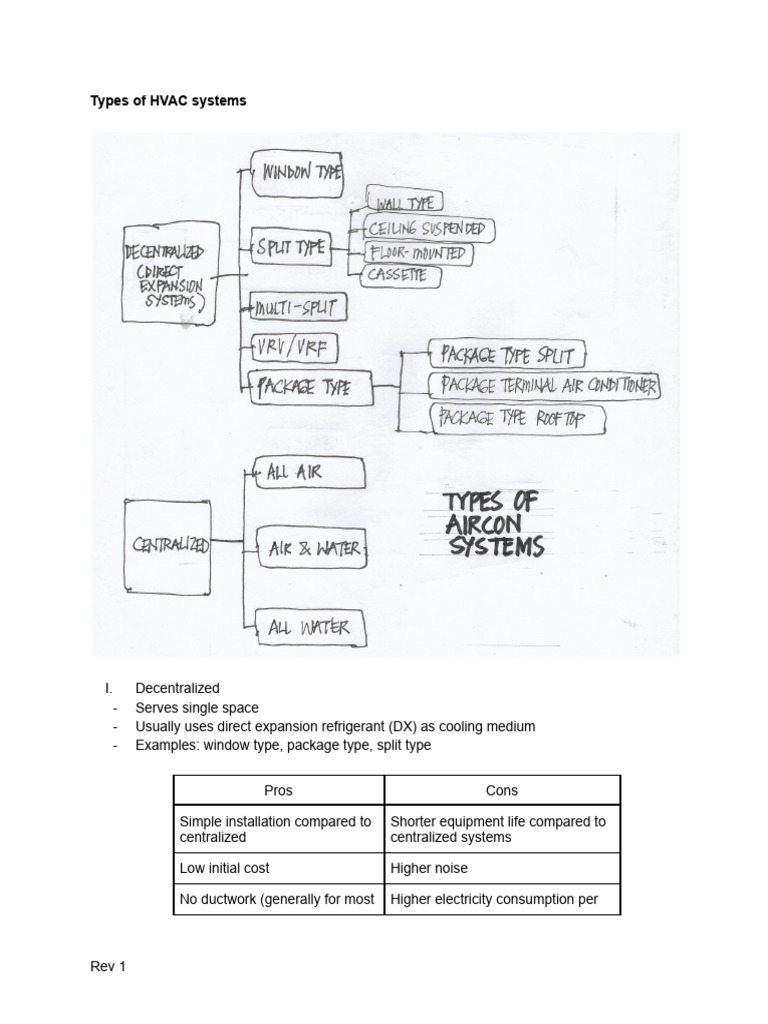 Types of HVAC systems
WINDOW TYPE
DECENTRALIZED
(DIRECT
EXPANSION
SYSTEMS)
SPLIT TYPE
WALL TYPE
CEILING SUSPENDED
FLOOR-MOUNTED
CASSETTE
MULTI-SPLIT
VRV/VRF
PACKAGE TYPE
PACKAGE TYPE SPLIT
PACKAGE TERMINAL AIR CONDITIONER
PACKAGE TYPE ROOFTOP
CENTRALIZED
ALL AIR
AIR & WATER
ALL WATER
TYPES OF
AIRCON
SYSTEMS
I. Decentralized
- Serves single space
- Usually uses direct expansion refrigerant (DX) as cooling medium
- Examples: window type, package type, split type
Pros Cons
Simple installation compared to Shorter equipment life compared to
centralized centralized systems
Low initial cost Higher noise
No ductwork (generally for most Higher electricity consumption per
Rev 1